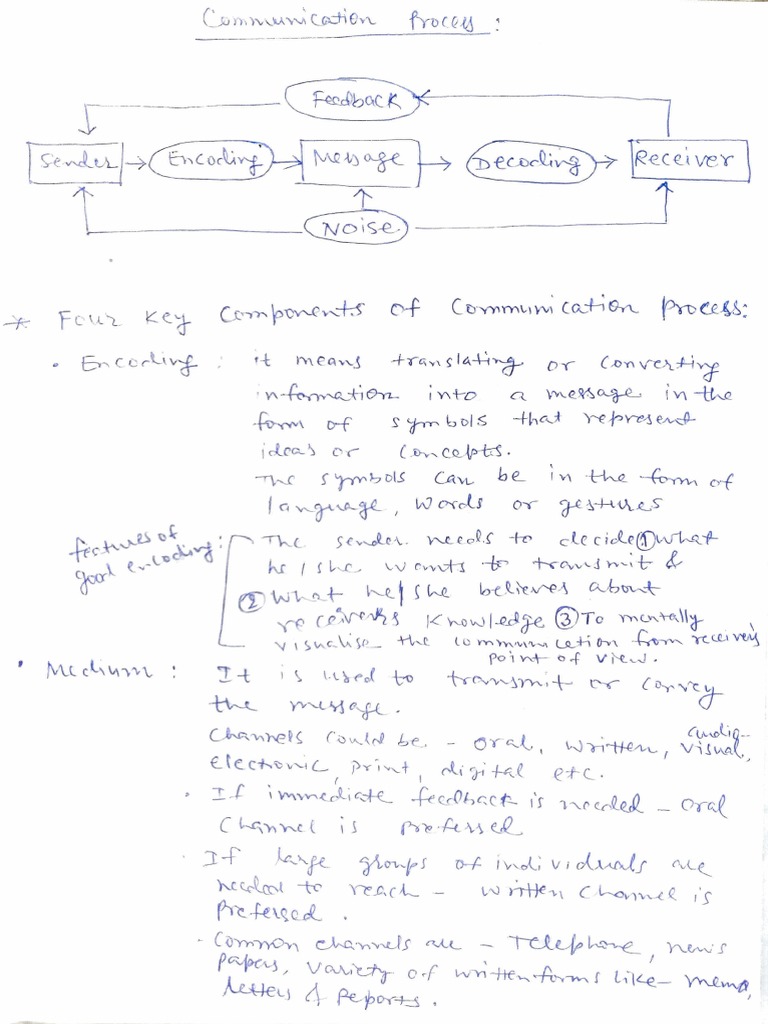 Communication Process :
Feedback
Sender Encoding Message Decoding Receiver
Noise
* Four Key Components of Communication Process:
• Encoding : it means translating or converting
information into a message in the
form of symbols that represent
ideas or concepts.
The symbols can be in the form of
language, words or gestures
features of
good encoding:
The sender needs to decide ① what
he/she wants to transmit &
② What he/she believes about
receivers knowledge ③ To mentally
visualise the communication from receiver's
point of view.
• Medium : It is used to transmit or convey
the message.
Channels could be - oral, written, audio-
visual,
electronic, print, digital etc.
• If immediate feedback is needed - oral
channel is preferred
• If large groups of individuals are
needed to reach - written channel is
preferred.
• Common channels are - Telephone, news
papers, variety of written forms like - memo,
letters & reports.